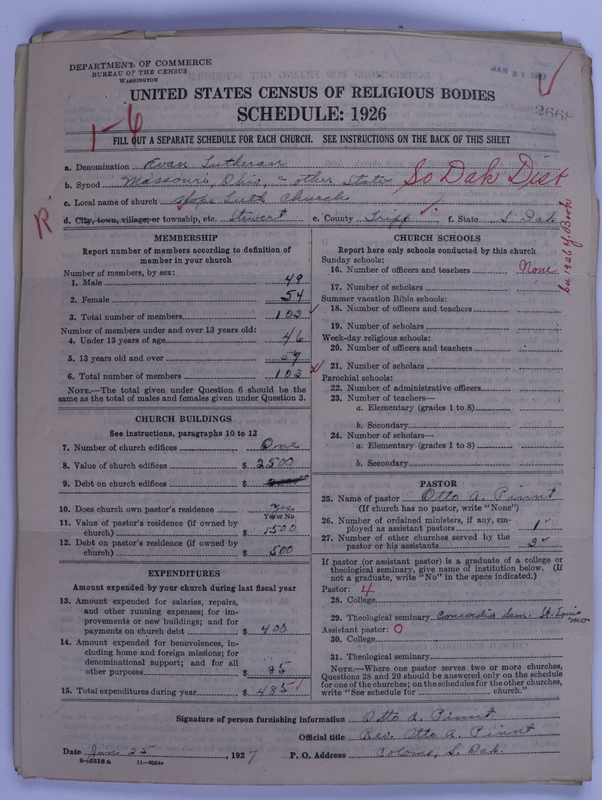 DEPARTMENT OF COMMERCE
BUREAU OF THE CENSUS
WASHINGTON
JAN 31 1927
UNITED STATES CENSUS OF RELIGIOUS BODIES
SCHEDULE: 1926
1-6
FILL OUT A SEPARATE SCHEDULE FOR EACH CHURCH. SEE INSTRUCTIONS ON THE BACK OF THIS SHEET
a. Denomination Evan Lutheran
b. Synod Missouri, Ohio, & other State So Dak Dist
c. Local name of church Hope Luth Church
R
d. City, town, village, or township, etc. Stewart e. County Tripp f. State S Dak
MEMBERSHIP
Report number of members according to definition of member in your church
Number of members, by sex:
1. Male 49
2. Female 54
3. Total number of members 103
Number of members under and over 13 years old:
4. Under 13 years of age 46
5. 13 years old and over 57
6. Total number of members 103
NOTE.—The total given under Question 6 should be the same as the total of males and females given under Question 3.
CHURCH BUILDINGS
See instructions, paragraphs 10 to 12
7. Number of church edifices One
8. Value of church edifices $ 2500
9. Debt on church edifices $
10. Does church own pastor's residence Yes
Yes or No
11. Value of pastor's residence (if owned by church) $ 1500
12. Debt on pastor's residence (if owned by church) $ 500
EXPENDITURES
Amount expended by your church during last fiscal year
13. Amount expended for salaries, repairs, and other running expenses; for improvements or new buildings; and for payments on church debt $ 400
14. Amount expended for benevolences, including home and foreign missions; for denominational support; and for all other purposes $ 85
15. Total expenditures during year $ 485
CHURCH SCHOOLS
Report here only schools conducted by this church
Sunday schools:
16. Number of officers and teachers None
17. Number of scholars
Summer vacation Bible schools:
18. Number of officers and teachers
19. Number of scholars
Week-day religious schools:
20. Number of officers and teachers
21. Number of scholars
Parochial schools:
22. Number of administrative officers
23. Number of teachers—
a. Elementary (grades 1 to 8)
b. Secondary
24. Number of scholars—
a. Elementary (grades 1 to 8)
b. Secondary
PASTOR
25. Name of pastor Otto A. Pinnt
(If church has no pastor, write "None")
26. Number of ordained ministers, if any, employed as assistant pastors 1
27. Number of other churches served by the pastor or his assistants
If pastor (or assistant pastor) is a graduate of a college or theological seminary, give name of institution below. (If not a graduate, write "No" in the space indicated.)
Pastor: 4
28. College
29. Theological seminary Concordia Sem. St. Louis Mo
Assistant pastor: 0
30. College
31. Theological seminary
NOTE.—Where one pastor serves two or more churches, Questions 28 and 29 should be answered only on the schedule for one of the churches; on the schedules for the other churches, write "See schedule for church."
Signature of person furnishing information Otto A. Pinnt
Official title Rev. Otto A. Pinnt
Date Jan 25, 1927 P. O. Address Colome, S. Dak.
8-5518 a 11-9054a